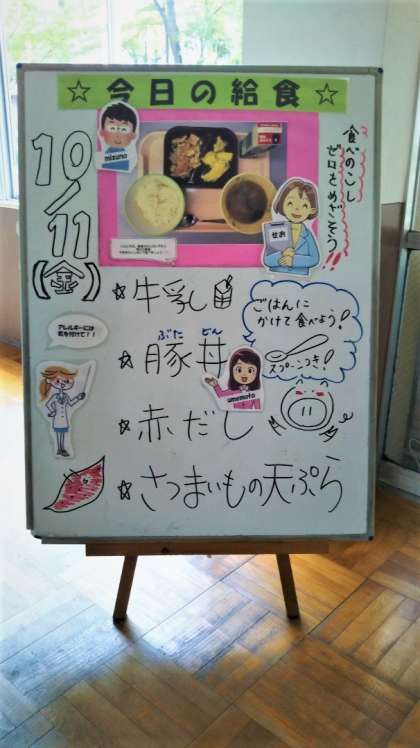 ☆ 今日の給食 ☆
mizuno
10/11
(金)
食べのこし
ゼロをめざそう!!
せお
☆牛乳
ごはんに
かけて食べよう!
スプーンつき!
アレルギーには
気を付けて!!
ぶた どん
☆豚丼
umemoto
☆赤だし
☆さつまいもの天ぷら